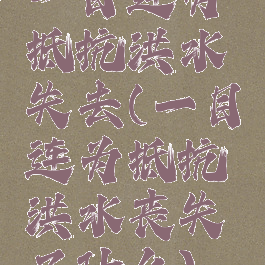 目连为
抵抗洪水
失去(一目
连为抵抗
洪水丧失